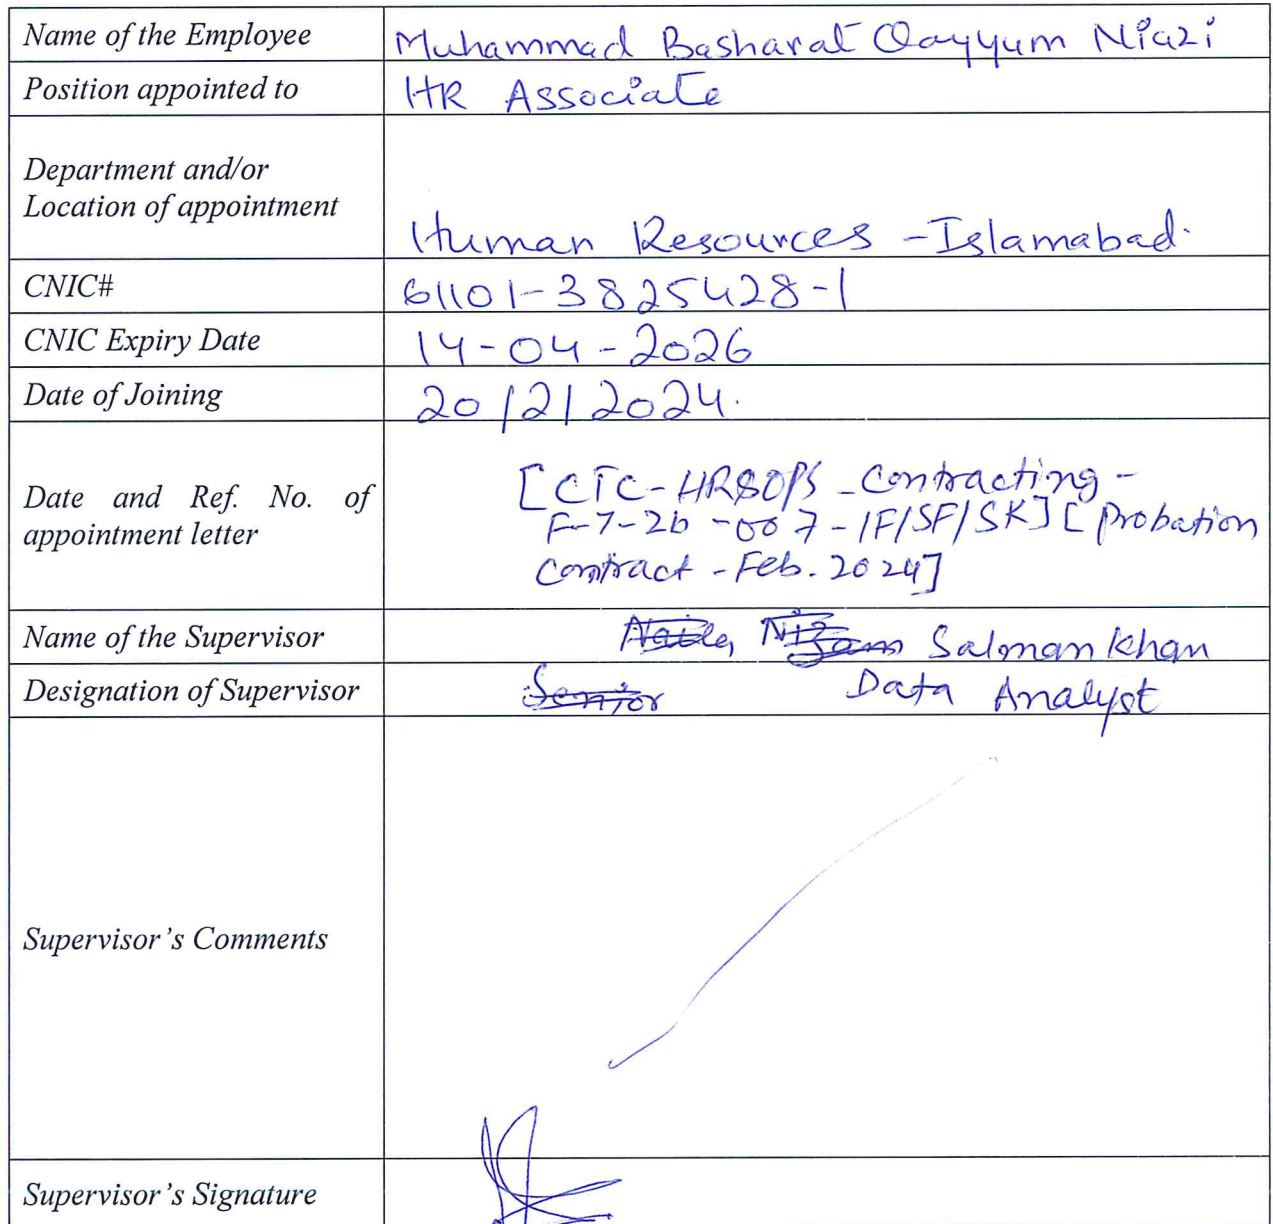 Name of the Employee Muhammad Basharat Qayyum Niazi
Position appointed to HR Associate
Department and/or
Location of appointment Human Resources - Islamabad.
CNIC# 61101-3825428-1
CNIC Expiry Date 14-04-2026
Date of Joining 20/2/2024.
[CTC-HR&OPS-Contracting-
Date and Ref. No. of F-7-2b-007-IF/SF/SK] [Probation
appointment letter Contract - Feb. 2024]
Name of the Supervisor Naila Nizam Salman Khan
Designation of Supervisor Senior Data Analyst
Supervisor's Comments
Supervisor's Signature